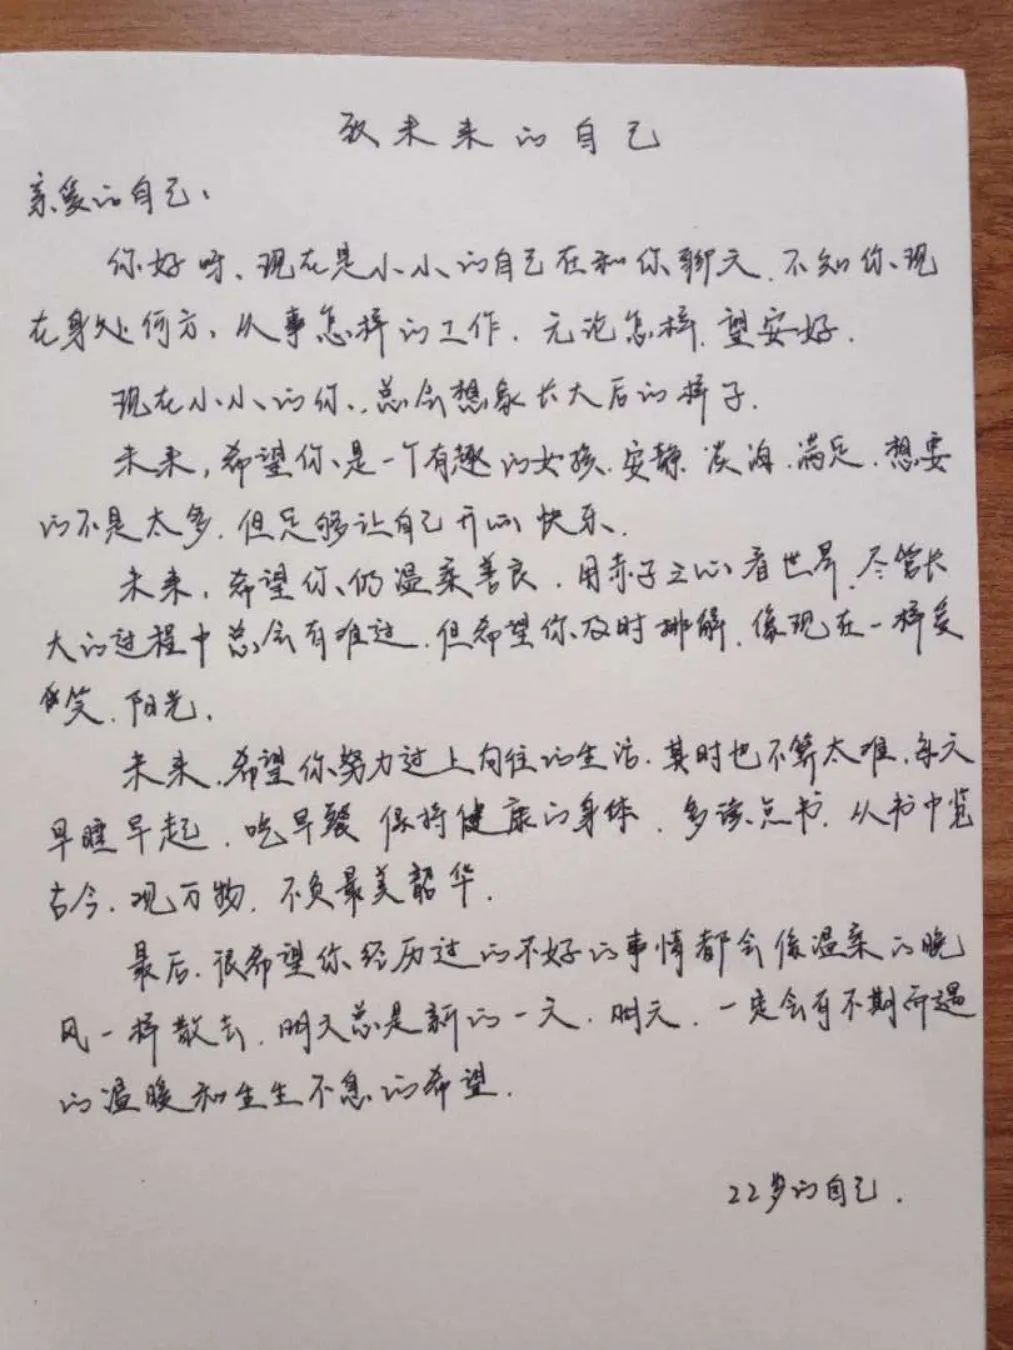 致未来的自己
亲爱的自己、
你好呀、现在是小小的自己在和你聊天、不知你现
在身处何方、从事怎样的工作、无论怎样、望安好.
现在小小的你、总会想象长大后的样子.
未来,希望你是一个有趣的女孩、安静、淡海、满足、想要
的不是太多、但足够让自己开心快乐、
未来,希望你仍温柔善良、用赤子之心看世界、尽管长
大的过程中总会有难过、但希望你及时排解、像现在一样爱
笑、阳光、
未来、希望你努力过上向往的生活、其时也不算太难、每天
早睡早起、吃早餐 保持健康的身体、多读点书、从书中览
古今、观万物、不负最美韶华.
最后、很希望你经历过的不好的事情都会像温柔的晚
风一样散去、明天总是新的一天、明天、一定会有不期而遇
的温暖和生生不息的希望.
22岁的自己.